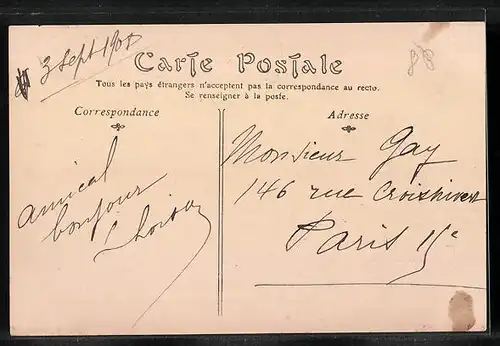 3 Sept 1908
Carte Postale
Tous les pays étrangers n'acceptent pas la correspondance au recto.
Se renseigner à la poste.
Correspondance
Adresse
amical
bonjour
Monsieur Gay
146 rue Croixnivert
Paris 15e